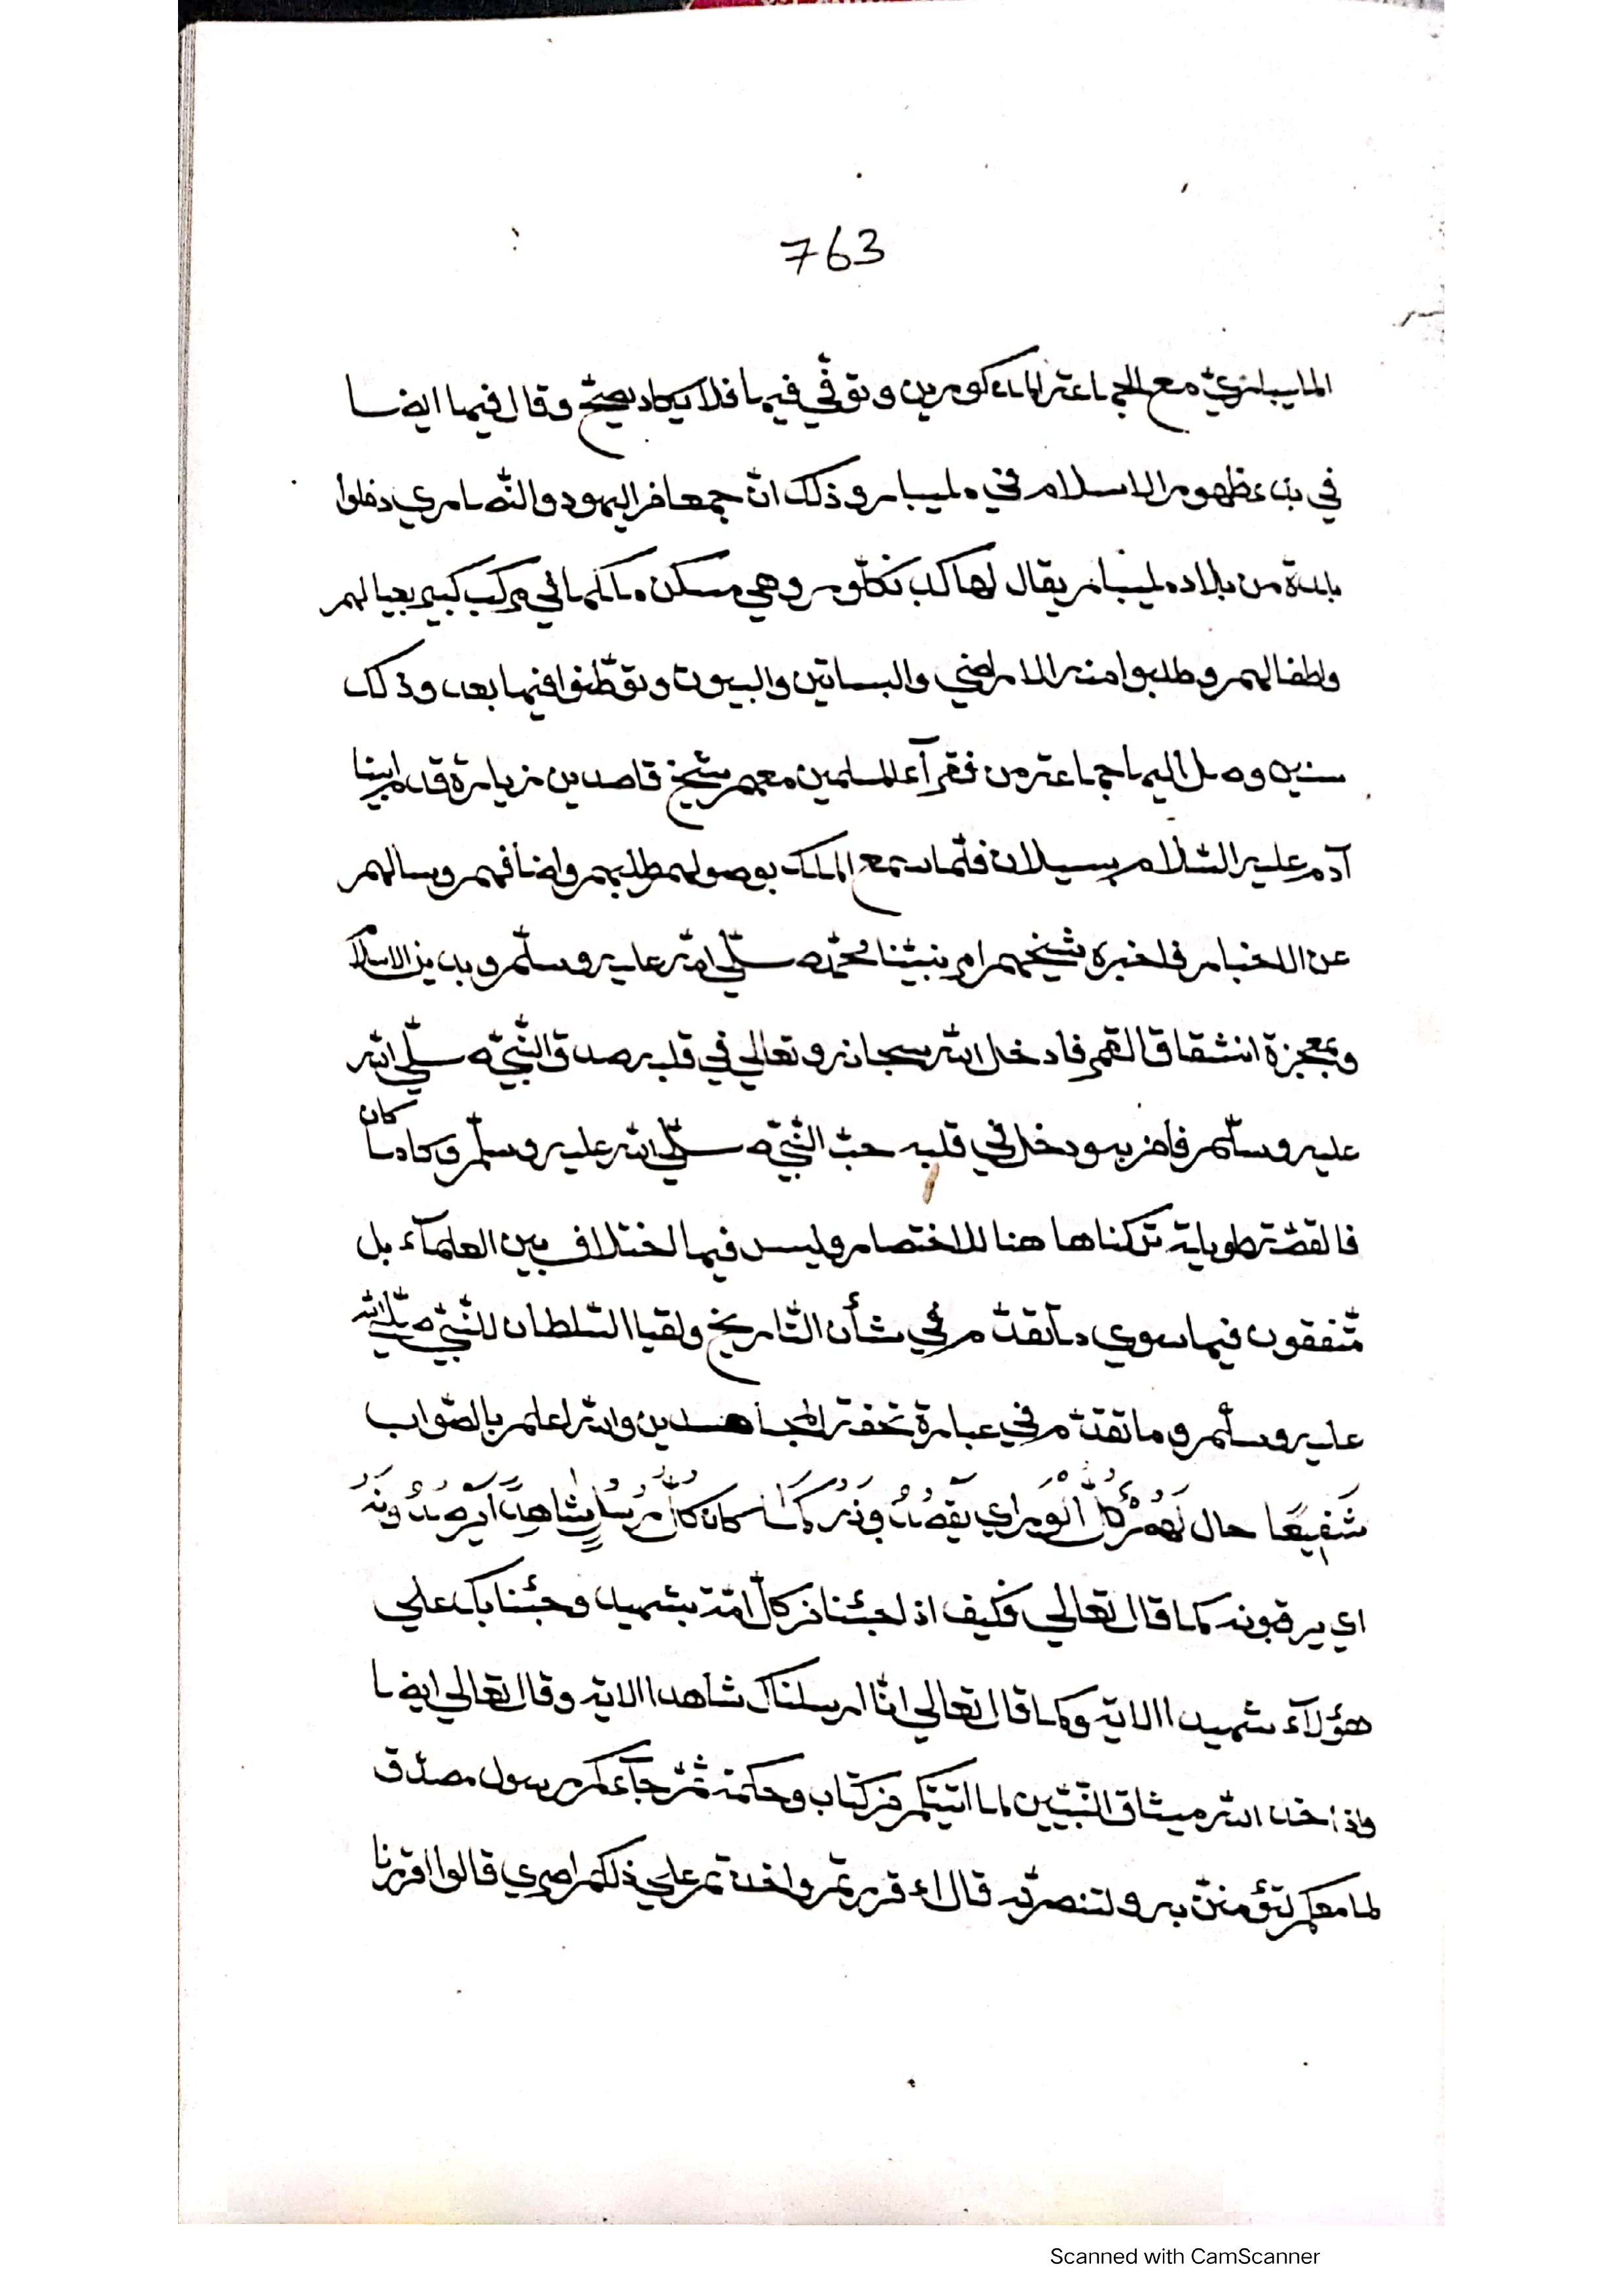 763
المليباري مع الجماعة المذكورين وتوفّي فيها فلا يكاد يصحّ وقال فيها ايضا
في بدء ظهور الاسلام في مليبار وذلك انّ جمعا من اليهود والنّصاري دخلوا
بلدة من بلاد مليبار يقال لها كدنكلّور وهي مسكن ملكها في مركب كبير بعيالهم
واطفالهم وطلبوا منه الاراضي والبساتين والبيوت وتوطّنوا فيها بعد وذلك
سنين وصل اليها جماعة من فقرآء المسلمين معهم شيخ قاصدين زيارة قدم ابينا
آدم عليه السّلام بسيلان فلمّا سمع الملك بوصولهم طلبهم واضافهم وسالهم
عن الاخبار فاخبره شيخهم بامر نبيّنا محمّد صلّي الله عليه وسلّم وبدين الاسلام
وبمعجزة انشقاق القمر فادخل الله سبحانه وتعالي في قلبه صدق النّبيّ صلّي الله
عليه وسلّم فامن به ودخل في قلبه حبّ النّبيّ صلّي الله عليه وسلّم كان
فالقصّة طويلة تركناها هنا للاختصار وليس فيها اختلاف بين العلمآء بل
متّفقون فيما سوي ما تقدّم في شأن التّاريخ ولقيا السّلطان للنّبيّ صلّي الله
عليه وسلّم وما تقدّم في عبارة تحفة المجاهدين والله اعلم بالصّواب
شَفِيعًا حال لَهُمْ كُلُّ الْوَرَاي يَقْصُدُونَهُ كَمَا كان كُلُّ مُرْسَلٍ شَاهِدًا يَرْصُدُونَهُ
اي يرقبونه كما قال تعالي فكيف اذا جئنا من كلّ امّة بشهيد وجئنا بك علي
هؤلآء شهيدا الاية وكما قال تعالي انّا ارسلناك شاهدا الاية وقال تعالي ايضا
واذ اخذ الله ميثاق النّبيّين لما اتيتكم من كتاب وحكمة ثمّ جآءكم رسول مصدّق
لما معكم لتؤمننّ به ولتنصرنّه قال ءاقررتم واخذتم علي ذلكم اصري قالوا اقررنا
Scanned with CamScanner